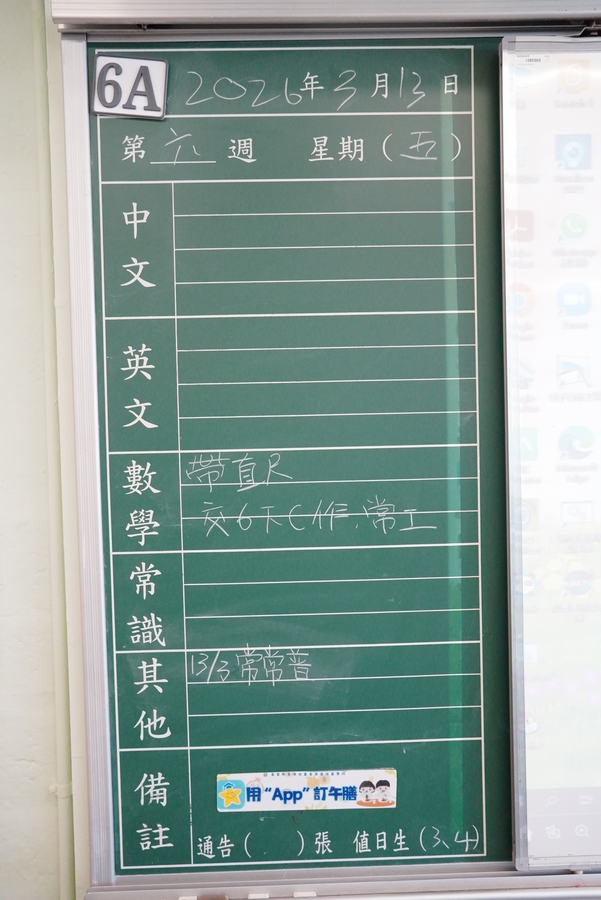 6A
2026年3月13日
第六週 星期(五)
中文
英文
數學
帶直尺
交6下C作、常工
常識
其他
13/3常常普
備註
用“App”訂午膳
通告( )張 值日生(3、4)